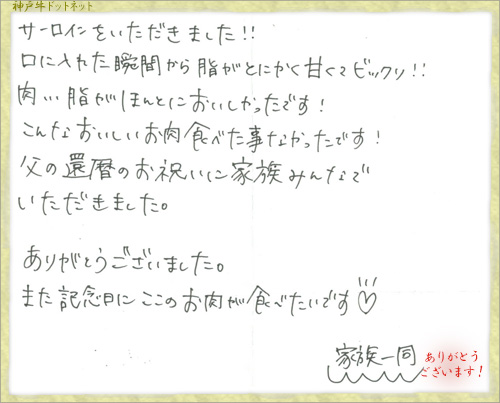 神戸牛ドットネット
サーロインをいただきました!!
口に入れた瞬間から脂がとにかく甘くてビックリ!!
肉い脂がほんとにおいしかったです!
こんなおいしいお肉食べた事なかったです!
父の還暦のお祝いに家族みんなで
いただきました。
ありがとうございました。
また記念日にここのお肉が食べたいです♡
家族一同
ありがとう
ございます!